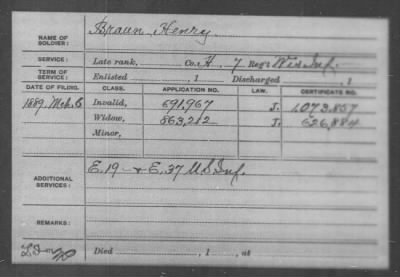 NAME OF SOLDIER: Braun, Henry
SERVICE: Late rank, Co. H, 7 Reg't Wis Inf.
TERM OF SERVICE: Enlisted , 1 Discharged , 1
DATE OF FILING. CLASS. APPLICATION NO. LAW. CERTIFICATE NO.
1889. Mch. 6 Invalid, 691,967 J. 1,073,857
Widow, 863,212 J. 626,884
Minor,
ADDITIONAL SERVICES: E. 19 - & E. 37 U S Inf.
REMARKS:
Died , 1 , at